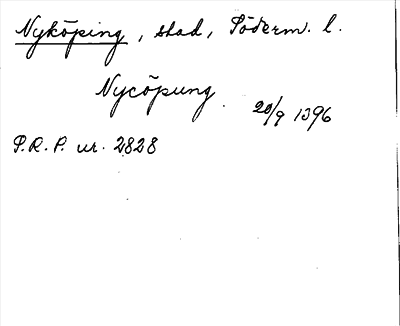 Nyköping, stad, Söderm. l.
Nycöpung. 20/9 1396
P.R.P. nr. 2828